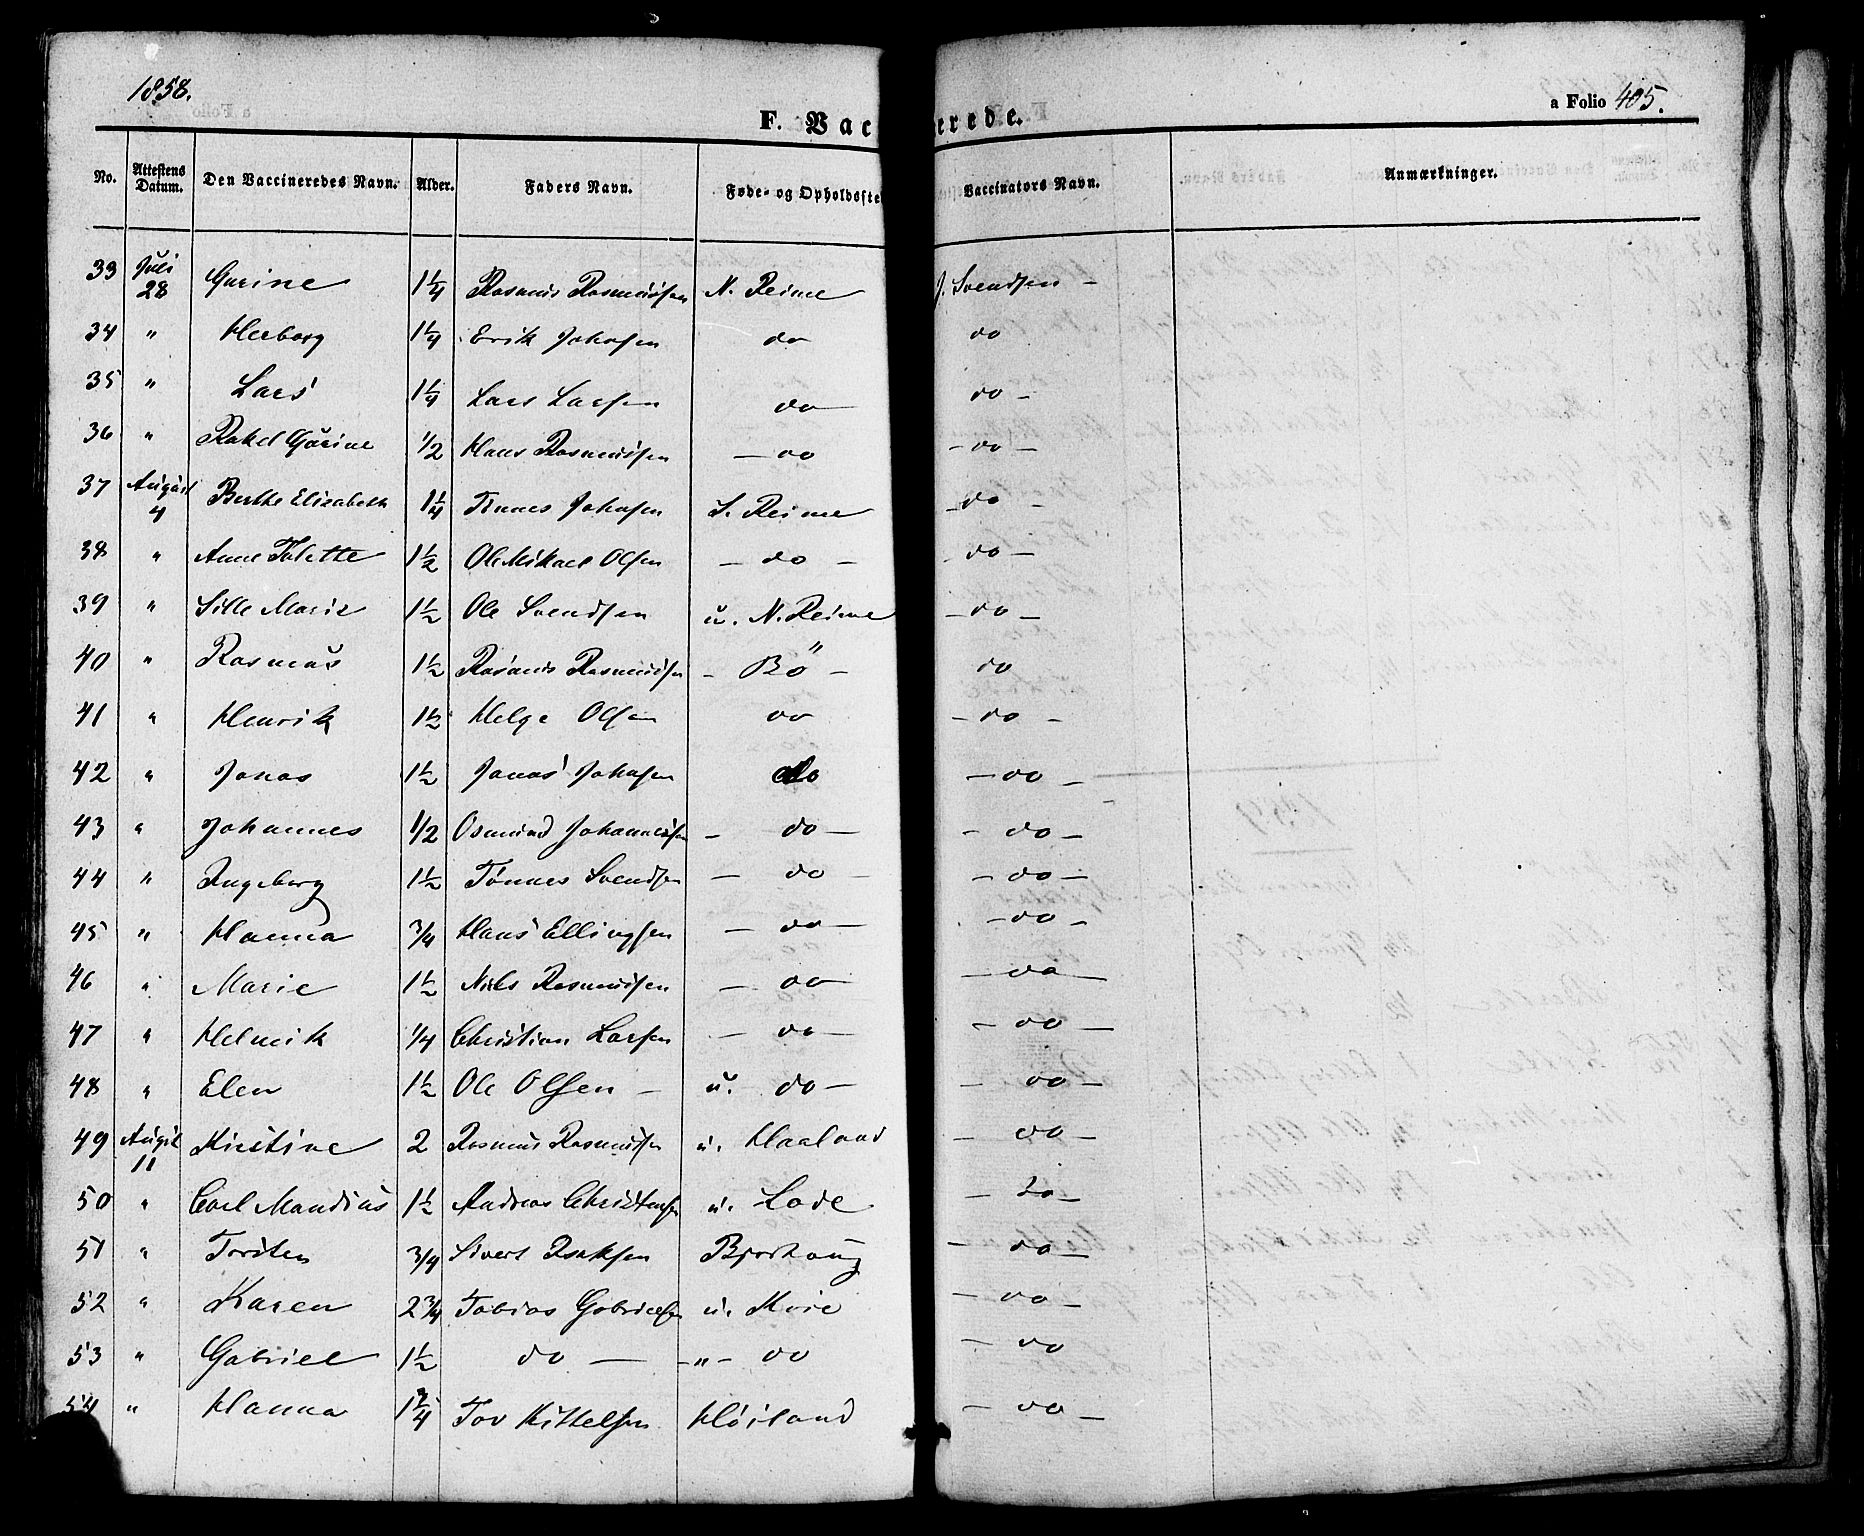 1858.
a Folio 405.
F. Vac erede.
No. Attestens Datum. Den Vaccineredes Navn. Alder. Faders Navn. Føde- og Opholdsste Vaccinators Navn. Anmærkninger.
33 Juli 28 Gurine 1 1/4 Rasmus Rasmussen N. Reime J. Svendsen -
34 " Herborg 1 1/4 Erik Johnsen do do
35 " Lars 1 1/4 Lars Larsen do do -
36 " Rakel Gurine 1/2 Hans Rasmussen - do - do -
37 August 4 Berthe Elisabeth 1 1/4 Tønnes Johnsen S. Reime - do -
38 " Anne Tolette 1 1/2 Ole Mikael Olsen - do - - do -
39 " Sille Marie 1 1/2 Ole Svendsen u. N. Reime - do -
40 " Rasmus 1 1/2 Rasmus Rasmussen - Bö - do
41 " Henrik 1 1/2 Helge Olsen do - do -
42 " Jonas 1 1/2 Jonas Johnsen do - do -
43 " Johannes 1/2 Osmund Johannesen - do - - do -
44 " Ingeborg 1 1/2 Tønnes Svendsen - do - - do -
45 " Hanna 3/4 Hans Ellingsen - do - - do -
46 " Marie 1 1/2 Niels Rasmussen - do - - do -
47 " Helmik 1/4 Christian Larsen - do - - do -
48 " Elen 1 1/2 Ole Olsen - u. do - - do -
49 August 11 Kristine 2 Rasmus Rasmussen u. Haaland - do -
50 " Carl Mandius 1 1/2 Andreas Christensen u. Lode - do -
51 " Torsten 3/4 Sivert Isaksen Bjorhaug - do -
52 " Karen 2 3/4 Tobias Gabrielsen u. Kvie - do -
53 " Gabriel 1 1/2 do - - " - do - do
54 " Hanna 1 3/4 Tov Kittelsen Høiland - do -